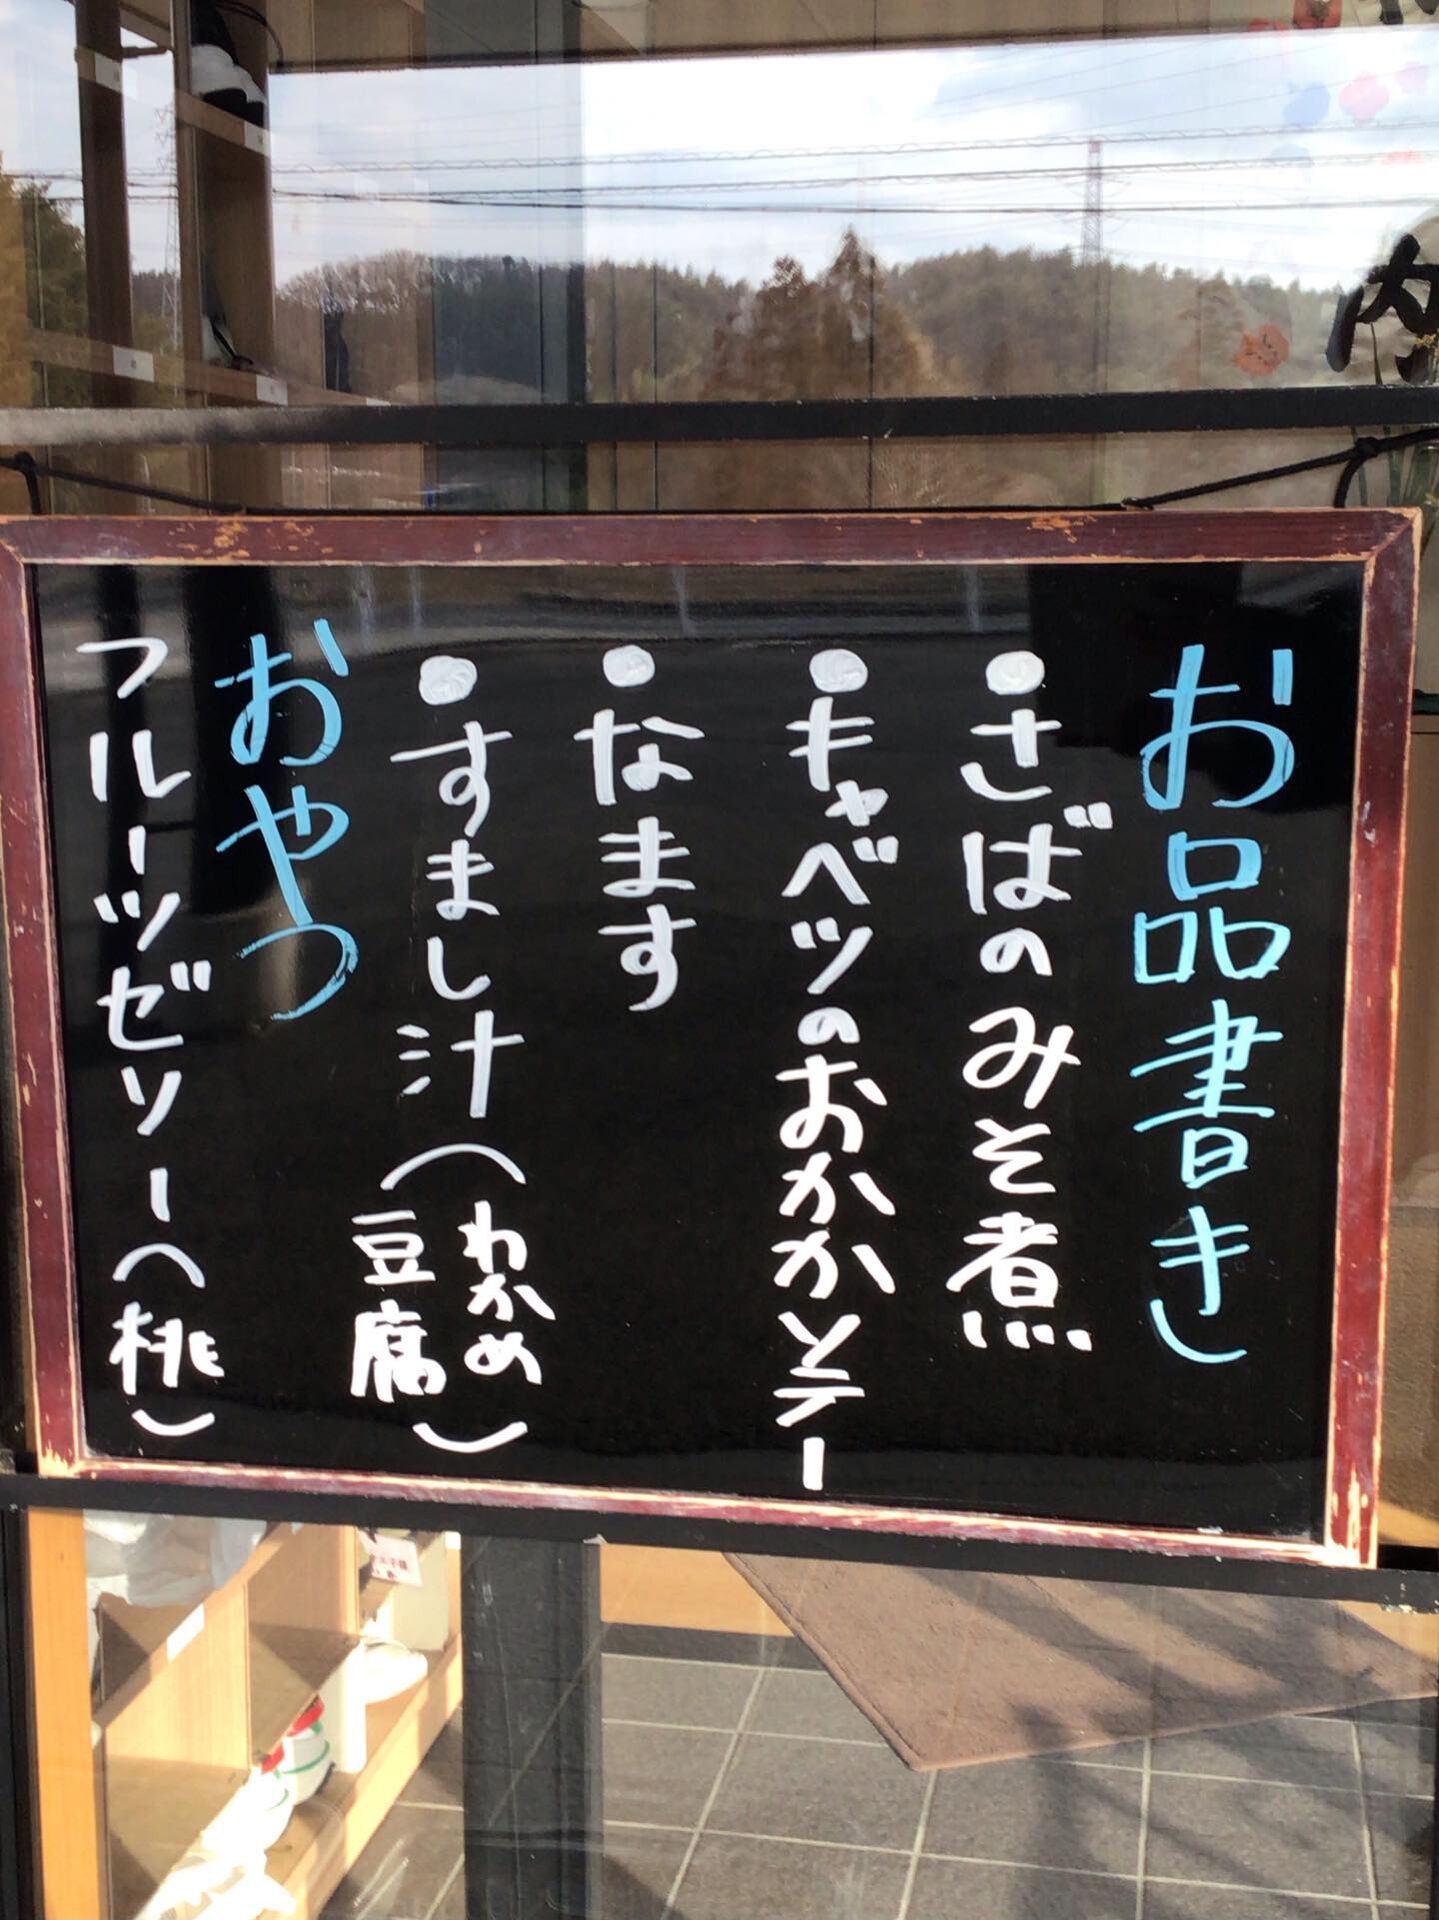 お品書き
●さばのみそ煮
●キャベツのおかかソテー
●なます
●すまし汁(わかめ
豆腐)
おやつ
フルーツゼリー(桃)
内